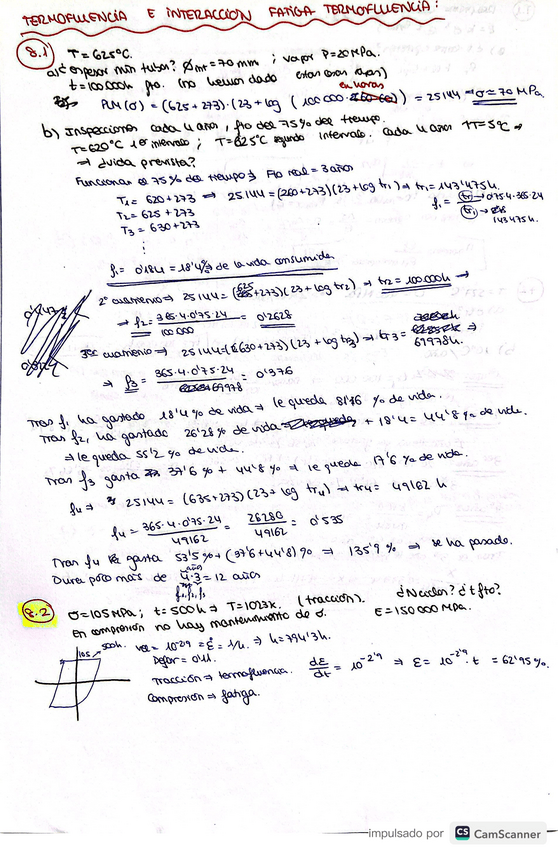 TERMOFLUENCIA E INTERACCIÓN FATIGA TERMOFLUENCIA:
8.1 T = 625ºC.
a) ¿espesor min tubos? Ømt = 70 mm ; vapor P=20MPa.
t = 100000h fto. (no llevan dado
en horas
PLM (σ) = (625 + 273)·(23 + log (100000)) = 25144 ⇒ σ = 70 MPa
b) Inspecciones cada 4 años, fto del 75% del tiempo.
T=620ºC 1er intervalo ; T=625ºC segundo intervalo. Cada 4 años ↑T=5ºC ⇒
⇒ ¿vida prevista?
Funcionar el 75% del tiempo } Fto real = 3 años
T1 = 620+273 ⇒ 25144 = (620+273)(23 + log tr1) ⇒ tr1 = 143'475h.
T2 = 625 + 273
T3 = 630+273
f1 = 0'75·4·365·24
143475h.
f1 = 0'184 = 18'4% de la vida consumida
2º cuatrienio ⇒ 25144 = (625+273)(23 + log tr2) ⇒ tr2 = 100000h →
⇒ f2 = 365·4·0'75·24 / 100000 = 0'2628
3er cuatrienio ⇒ 25144 = (630+273)(23 + log tr3) ⇒ tr3 = 69978h. ⇒
⇒ f3 = 365·4·0'75·24 / 69978 = 0'376
Tras f1 ha gastado 18'4 % de vida ⇒ le queda 81'6 % de vida.
Tras f2, ha gastado 26'28 % de vida + 18'4 = 44'8 % de vida.
⇒ le queda 55'2 % de vida.
Tras f3 gasta 37'6 % + 44'8 % ⇒ le queda 17'6 % de vida.
f4 ⇒ 25144 = (635+273)(23 + log tr4) → tr4 = 49162 h
f4 = 365·4·0'75·24 / 49162 = 26280 / 49162 = 0'535
Tras f4 gasta 53'5 % + (37'6 + 44'8) % ⇒ 135'9 % ⇒ se ha pasado.
Dura poco más de 4·3 = 12 años
años
f1, f2, f3
8.2 σ = 105 MPa ; t = 500h ⇒ T = 1023K. (tracción). ¿Nciclos? ¿t fto?
En compresión no hay mantenimiento de σ. E = 150000 MPa.
105 500h.
vel = 10^-2'9 = ε̇ = 1/h ⇒ h = 794'3h.
Defor = 0'11.
Tracción ⇒ termofluencia. dε/dt = 10^-2'9 ⇒ ε = 10^-2'9 · t = 62'95 %.
Compresión ⇒ fatiga.
impulsado por CS CamScanner